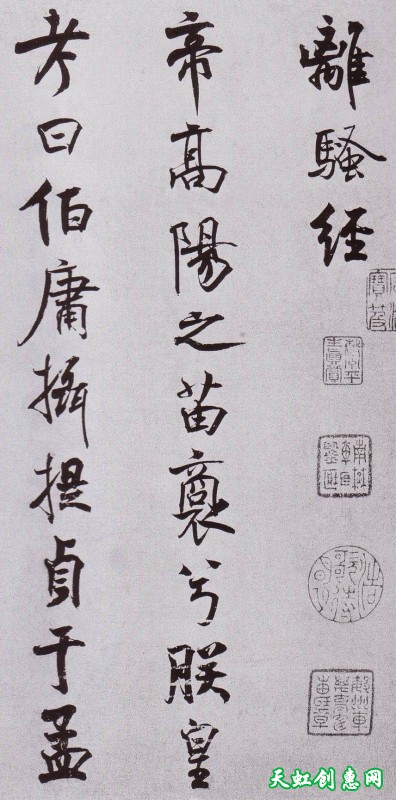 離騷經
帝高陽之苗裔兮朕皇
考曰伯庸攝提貞于孟
天虹创惠网